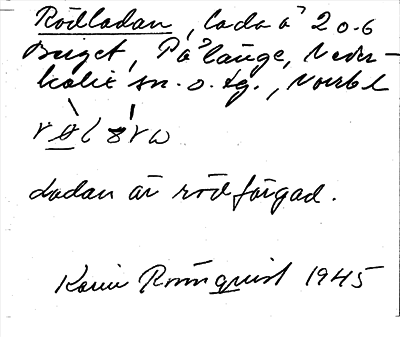 Rödladan, lada å 20.6
Bruget, Pålänge, Neder-
kalix sn. o. tg., Norrb l
Ladan är rödfärgad.
Karin Rönnquist 1945